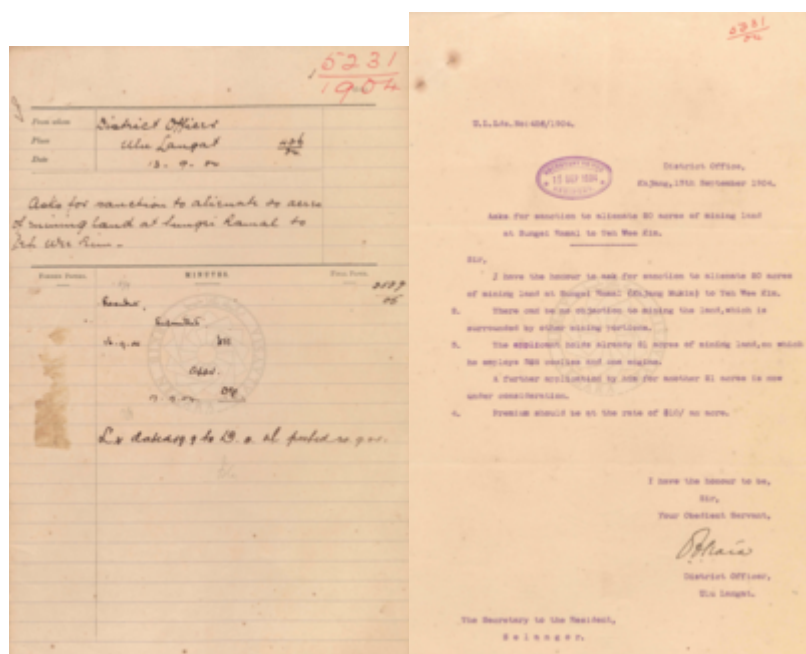 5231
1904
From whom
District Officer
Place
Ulu Langat
Date
13. 9. 04
Asks for sanction to alienate 20 acres
of mining land at Sungei Ramal to
Yeh Wee Kim.
MINUTES.
Resident,
Submitted
Appd.
5231
04
U.L.Lds.No:486/1904.
SECRETARY TO THE
15 SEP 1904
District Office,
Kajang, 13th September 1904.
Asks for sanction to alienate 20 acres of mining land
at Sungei Ramal to Yeh Wee Kim.
Sir,
I have the honour to ask for sanction to alienate 20 acres
of mining land at Sungei Ramal (Kajang Mukim) to Yeh Wee Kim.
2. There can be no objection to mining the land, which is
surrounded by other mining portions.
3. The applicant holds already 21 acres of mining land, on which
he employs coolies and one engine.
A further application by him for another 21 acres is now
under consideration.
4. Premium should be at the rate of $10/ an acre.
I have the honour to be,
Sir,
Your Obedient Servant,
District Officer,
Ulu Langat.
The Secretary to the Resident,
Selangor.